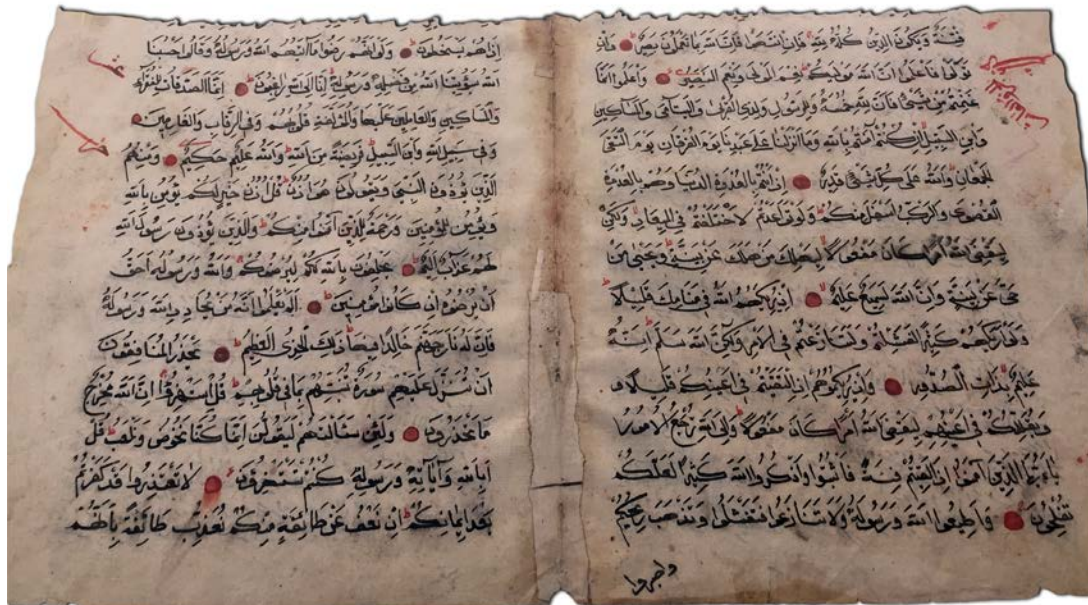 فِتْنَةٌ وَيَكُونَ الدِّينُ كُلُّهُ لِلَّهِ فَإِنِ انْتَهَوْا فَإِنَّ اللَّهَ بِمَا يَعْمَلُونَ بَصِيرٌ وَإِنْ
تَوَلَّوْا فَاعْلَمُوا أَنَّ اللَّهَ مَوْلَاكُمْ نِعْمَ الْمَوْلَى وَنِعْمَ النَّصِيرُ وَاعْلَمُوا أَنَّمَا
غَنِمْتُمْ مِنْ شَيْءٍ فَأَنَّ لِلَّهِ خُمُسَهُ وَلِلرَّسُولِ وَلِذِي الْقُرْبَى وَالْيَتَامَى وَالْمَسَاكِينِ
وَابْنِ السَّبِيلِ إِنْ كُنْتُمْ آمَنْتُمْ بِاللَّهِ وَمَا أَنْزَلْنَا عَلَى عَبْدِنَا يَوْمَ الْفُرْقَانِ يَوْمَ الْتَقَى
الْجَمْعَانِ وَاللَّهُ عَلَى كُلِّ شَيْءٍ قَدِيرٌ إِذْ أَنْتُمْ بِالْعُدْوَةِ الدُّنْيَا وَهُمْ بِالْعُدْوَةِ
الْقُصْوَى وَالرَّكْبُ أَسْفَلَ مِنْكُمْ وَلَوْ تَوَاعَدْتُمْ لَاخْتَلَفْتُمْ فِي الْمِيعَادِ وَلَكِنْ
لِيَقْضِيَ اللَّهُ أَمْرًا كَانَ مَفْعُولًا لِيَهْلِكَ مَنْ هَلَكَ عَنْ بَيِّنَةٍ وَيَحْيَى مَنْ
حَيَّ عَنْ بَيِّنَةٍ وَإِنَّ اللَّهَ لَسَمِيعٌ عَلِيمٌ إِذْ يُرِيكَهُمُ اللَّهُ فِي مَنَامِكَ قَلِيلًا
وَلَوْ أَرَاكَهُمْ كَثِيرًا لَفَشِلْتُمْ وَلَتَنَازَعْتُمْ فِي الْأَمْرِ وَلَكِنَّ اللَّهَ سَلَّمَ إِنَّهُ
عَلِيمٌ بِذَاتِ الصُّدُورِ وَإِذْ يُرِيكُمُوهُمْ إِذِ الْتَقَيْتُمْ فِي أَعْيُنِكُمْ قَلِيلًا
وَيُقَلِّلُكُمْ فِي أَعْيُنِهِمْ لِيَقْضِيَ اللَّهُ أَمْرًا كَانَ مَفْعُولًا وَإِلَى اللَّهِ تُرْجَعُ الْأُمُورُ
يَا أَيُّهَا الَّذِينَ آمَنُوا إِذَا لَقِيتُمْ فِئَةً فَاثْبُتُوا وَاذْكُرُوا اللَّهَ كَثِيرًا لَعَلَّكُمْ
تُفْلِحُونَ وَأَطِيعُوا اللَّهَ وَرَسُولَهُ وَلَا تَنَازَعُوا فَتَفْشَلُوا وَتَذْهَبَ رِيحُكُمْ
واصبروا
إِذَا هُمْ يَسْخَطُونَ وَلَوْ أَنَّهُمْ رَضُوا مَا آتَاهُمُ اللَّهُ وَرَسُولُهُ وَقَالُوا حَسْبُنَا
اللَّهُ سَيُؤْتِينَا اللَّهُ مِنْ فَضْلِهِ وَرَسُولُهُ إِنَّا إِلَى اللَّهِ رَاغِبُونَ إِنَّمَا الصَّدَقَاتُ لِلْفُقَرَاءِ
وَالْمَسَاكِينِ وَالْعَامِلِينَ عَلَيْهَا وَالْمُؤَلَّفَةِ قُلُوبُهُمْ وَفِي الرِّقَابِ وَالْغَارِمِينَ
وَفِي سَبِيلِ اللَّهِ وَابْنِ السَّبِيلِ فَرِيضَةً مِنَ اللَّهِ وَاللَّهُ عَلِيمٌ حَكِيمٌ وَمِنْهُمُ
الَّذِينَ يُؤْذُونَ النَّبِيَّ وَيَقُولُونَ هُوَ أُذُنٌ قُلْ أُذُنُ خَيْرٍ لَكُمْ يُؤْمِنُ بِاللَّهِ
وَيُؤْمِنُ لِلْمُؤْمِنِينَ وَرَحْمَةٌ لِلَّذِينَ آمَنُوا مِنْكُمْ وَالَّذِينَ يُؤْذُونَ رَسُولَ اللَّهِ
لَهُمْ عَذَابٌ أَلِيمٌ يَحْلِفُونَ بِاللَّهِ لَكُمْ لِيُرْضُوكُمْ وَاللَّهُ وَرَسُولُهُ أَحَقُّ
أَنْ يُرْضُوهُ إِنْ كَانُوا مُؤْمِنِينَ أَلَمْ يَعْلَمُوا أَنَّهُ مَنْ يُحَادِدِ اللَّهَ وَرَسُولَهُ
فَأَنَّ لَهُ نَارَ جَهَنَّمَ خَالِدًا فِيهَا ذَلِكَ الْخِزْيُ الْعَظِيمُ يَحْذَرُ الْمُنَافِقُونَ
أَنْ تُنَزَّلَ عَلَيْهِمْ سُورَةٌ تُنَبِّئُهُمْ بِمَا فِي قُلُوبِهِمْ قُلِ اسْتَهْزِئُوا إِنَّ اللَّهَ مُخْرِجٌ
مَا تَحْذَرُونَ وَلَئِنْ سَأَلْتَهُمْ لَيَقُولُنَّ إِنَّمَا كُنَّا نَخُوضُ وَنَلْعَبُ قُلْ
أَبِاللَّهِ وَآيَاتِهِ وَرَسُولِهِ كُنْتُمْ تَسْتَهْزِئُونَ لَا تَعْتَذِرُوا قَدْ كَفَرْتُمْ
بَعْدَ إِيمَانِكُمْ إِنْ نَعْفُ عَنْ طَائِفَةٍ مِنْكُمْ نُعَذِّبْ طَائِفَةً بِأَنَّهُمْ